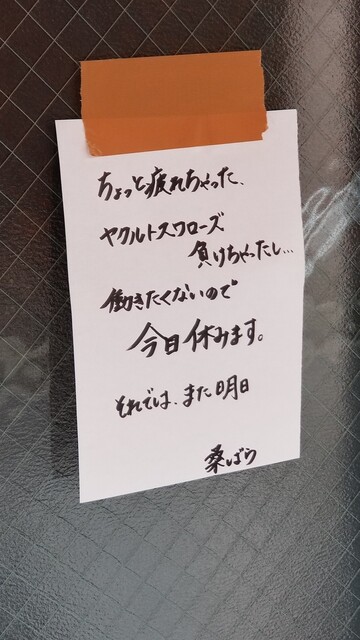 ちょっと疲れちゃった、
ヤクルトスワローズ
負けちゃったし…
働きたくないので
今日休みます。
それでは、また明日
桑ばら